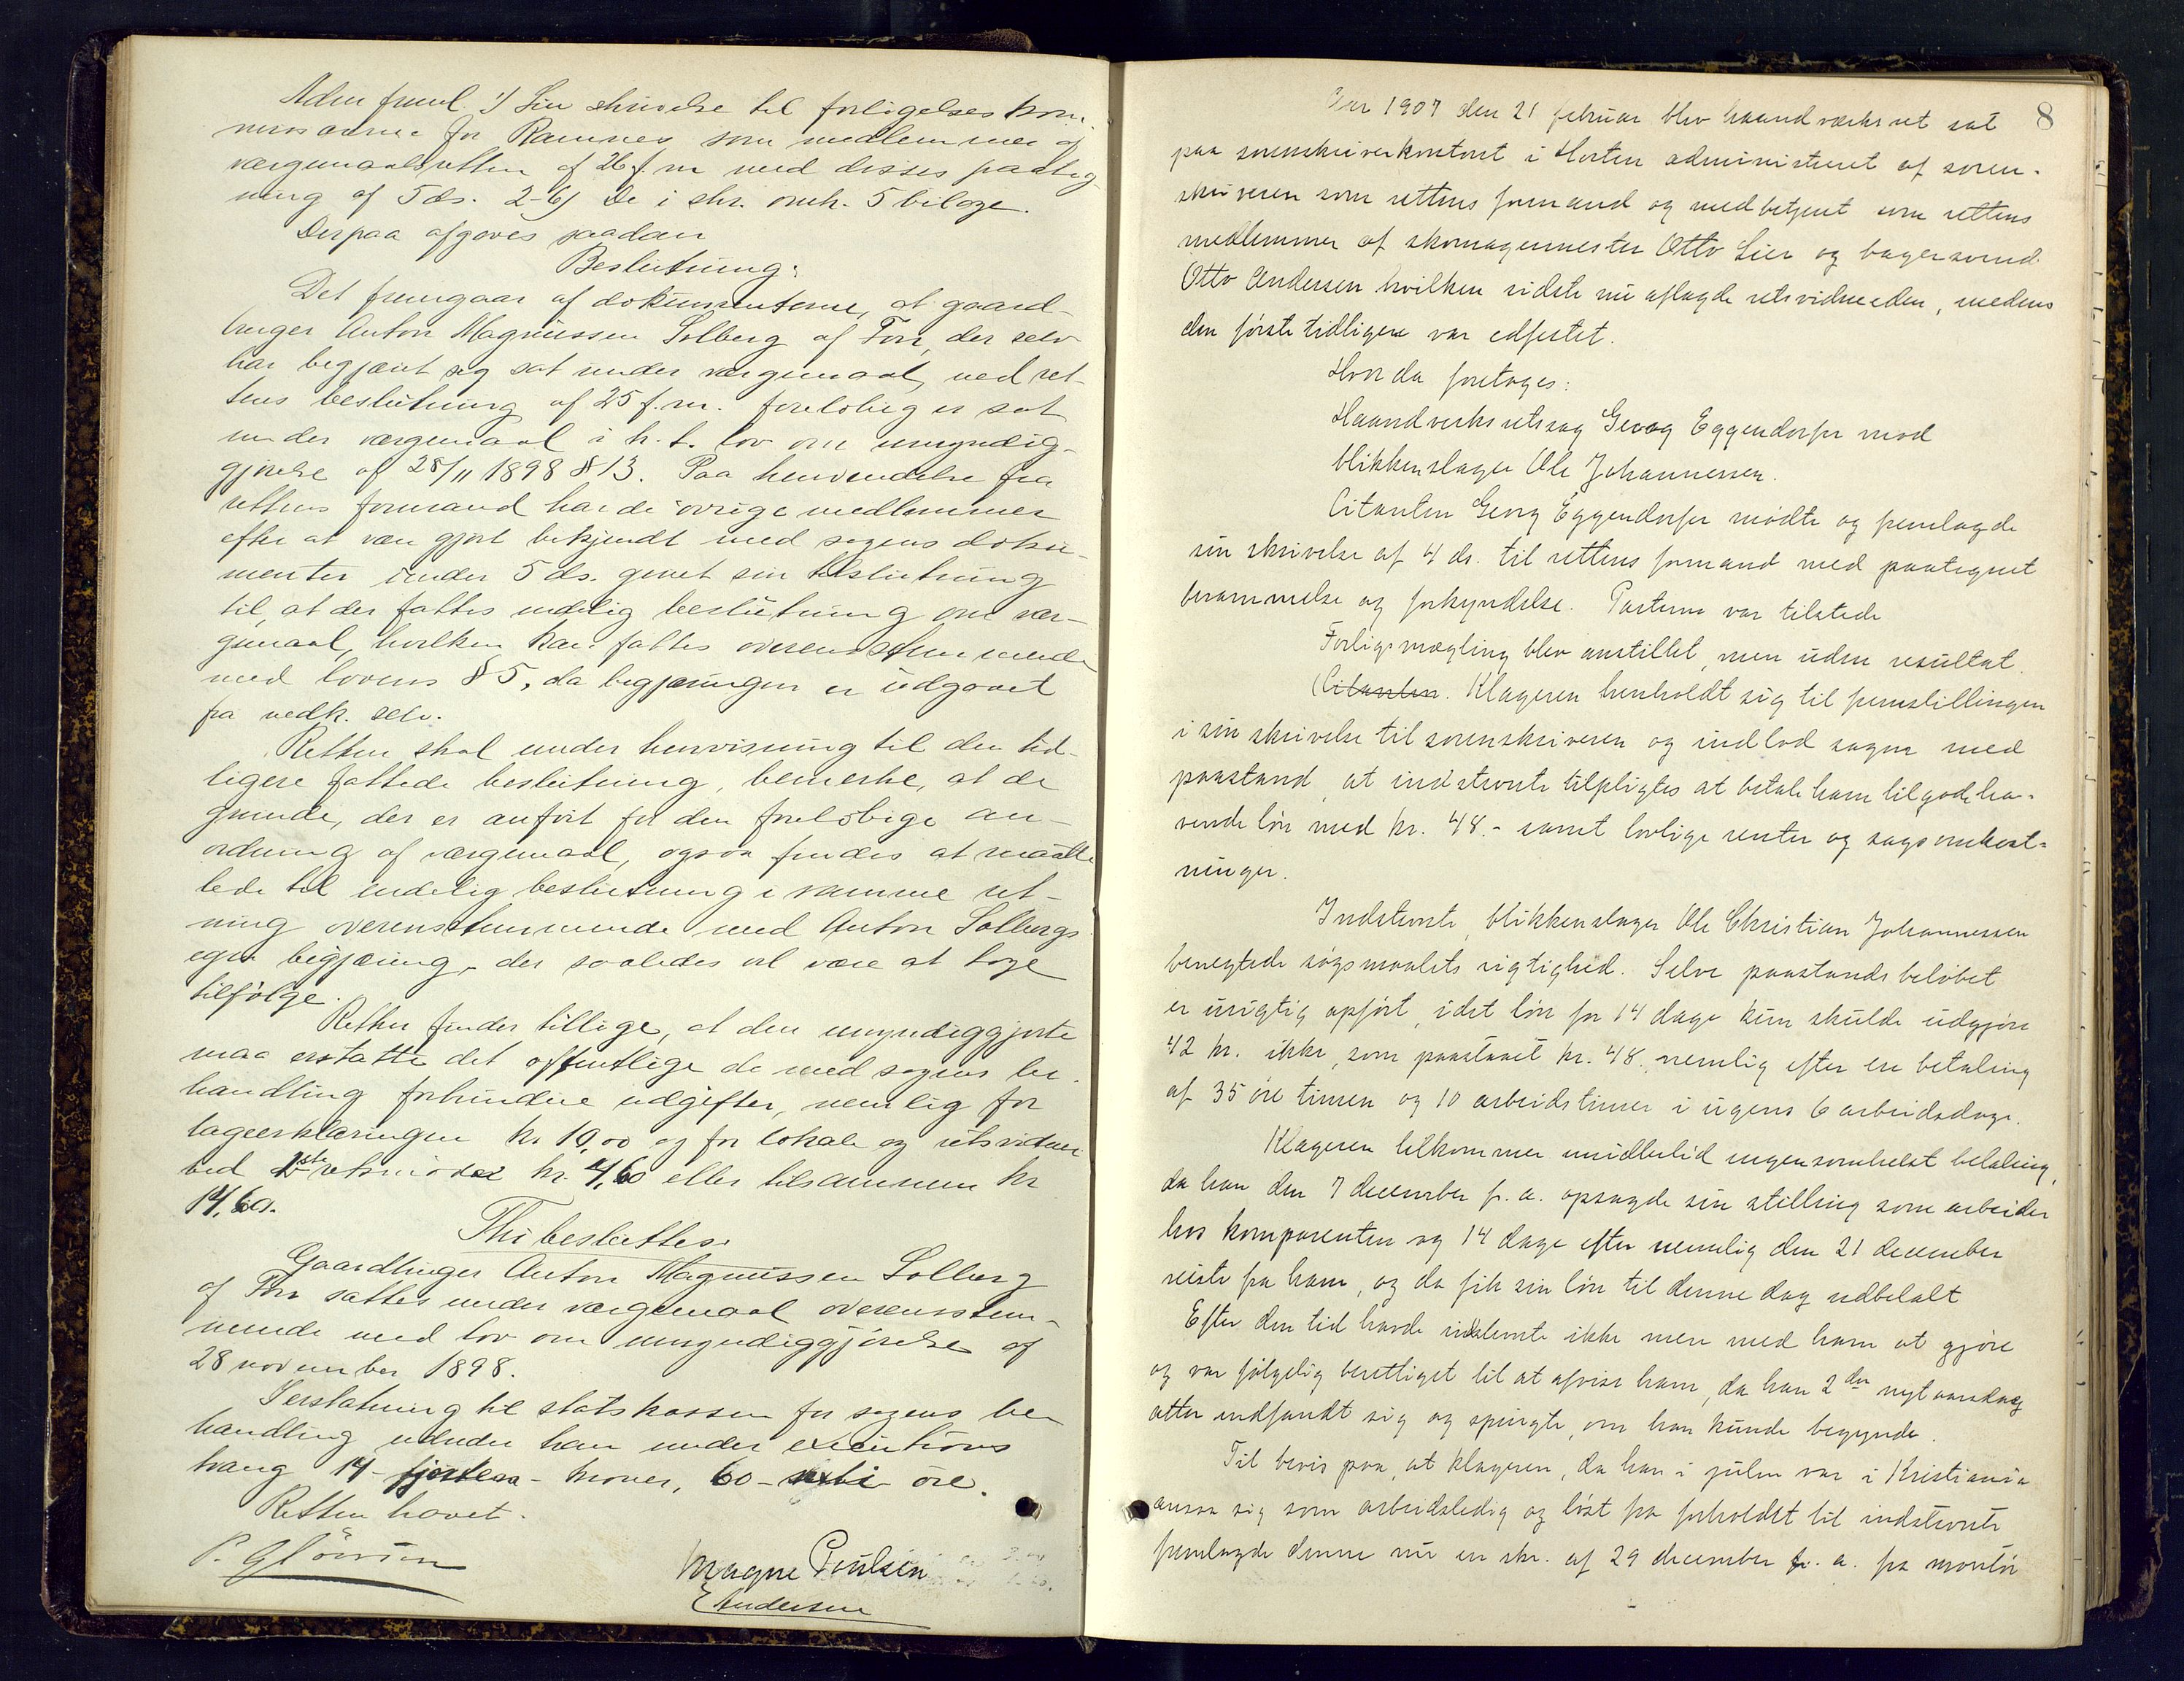 Adm freml. 1) Sin skrivelse til forligelseskom-
missærerne for Ramnes som medlemmer af
værgemaalsretten af 26 f. m med disses paateg-
ning af 5 ds. 2-6) De i skr. omh. 5 bilage.
Derpaa afgaves saadan
Beslutning:
Det fremgaar af dokumenterne, at gaard-
bruger Anton Magnussen Solberg af Fon, der selv
har begjæret sig sat under værgemaal, ved ret-
tens beslutning af 25 f. m. foreløbig er sat
under værgemaal i h. t. lov om umyndig-
gjørelse af 28/11 1898 § 13. Paa henvendelse fra
rettens formand har de øvrige medlemmer
efter at være gjort bekjendt med sagens doku-
menter under 5 ds. givet sin tilslutning
til, at der fattes endelig beslutning om vær-
gemaal, hvilken kan fattes overensstemmende
med lovens § 5, da begjæringen er udgaaet
fra vedk. selv.
Retten skal under henvisning til den tid-
ligere fattede beslutning, bemerke, at de
grunde, der er anført for den foreløbige an-
ordning af værgemaal, ogsaa findes at maatte
lede til endelig beslutning i samme ret-
ning overensstemmende med Anton Solbergs
egen begjæring, der saaledes vil være at tage
tilfølge.
Retten finder tillige, at den umyndiggjorte
maa erstatte det offentlige de med sagens be-
handling forbundne udgifter, nemlig for
lægeerklæringen kr. 10,00 og for lokale og retsvidner
ved 1ste retsmøde kr. 4,60 eller tilsammen kr
14,60.
Thi besluttes:
Gaardbruger Anton Magnussen Solberg
af Fon sættes under værgemaal overensstem-
mende med lov om umyndiggjørelse af
28 november 1898.
I erstatning til statskassen for sagens be-
handling udreder han under executions
tvang 14 - fjorten - kroner, 60 - seksti øre.
Retten hævet.
P. Glörsen
Magne Poulsen
E Andersen
8
Aar 1907 den 21 februar blev haandværksret sat
paa sorenskriverkontoret i Horten administreret af soren-
skriveren som rettens formand og medbetjent som rettens
medlemmer af skomagermester Otto Lier og bagersvend
Otto Andersen hvilken sidste nu aflagde retsvidneeden, medens
den første tidligere var edfæstet.
Hvor da foretages:
Haandverksretssag Georg Eggendorfer mod
blikkenslager Ole Johannessen.
Citanten Georg Eggendorfer mødte og fremlagde
sin skrivelse af 4 ds. til rettens formand med paategnet
berammelse og forkyndelse. Parterne var tilstede
Forligsmægling blev anstillet, men uden resultat.
(Citanten. Klageren henholdt sig til fremstillingen
i sin skrivelse til sorenskriveren og indlod sagen med
paastand, at indstevnte tilpligtes at betale ham tilgodeha-
vende løn med kr. 48.- samt lovlige renter og sagsomkost-
ninger.
Indstevnte, blikkenslager Ole Christian Johannessen
benegtede søgsmaalets rigtighed. Selve paastandsbeløbet
er urigtig opført, idet løn for 14 dage kun skulde udgjøre
42 kr. ikke, som paastaaet kr. 48, nemlig efter en betaling
af 35 øre timen og 10 arbeidstimer i ugens 6 arbeidsdage.
Klageren tilkommer imidlertid ingensomhelst betaling,
da han den 7 december f. a. opsagde sin stilling som arbeider
hos komparenten og 14 dage efter nemlig den 21 december
reiste fra ham, og da fik sin løn til denne dag udbetalt
Efter den tid havde indstevnte ikke mere med ham at gjøre
og var følgelig berettiget til at afvise ham, da han 2den nytaarsdag
atter indfandt sig og spurgte, om han kunde begynde.
Til bevis paa, at klageren, da han i julen var i Kristiania
ansaa sig som arbeidsledig og løst fra forholdet til indstevnte
fremlagde denne nu en skr. af 29 december f. a. fra montør